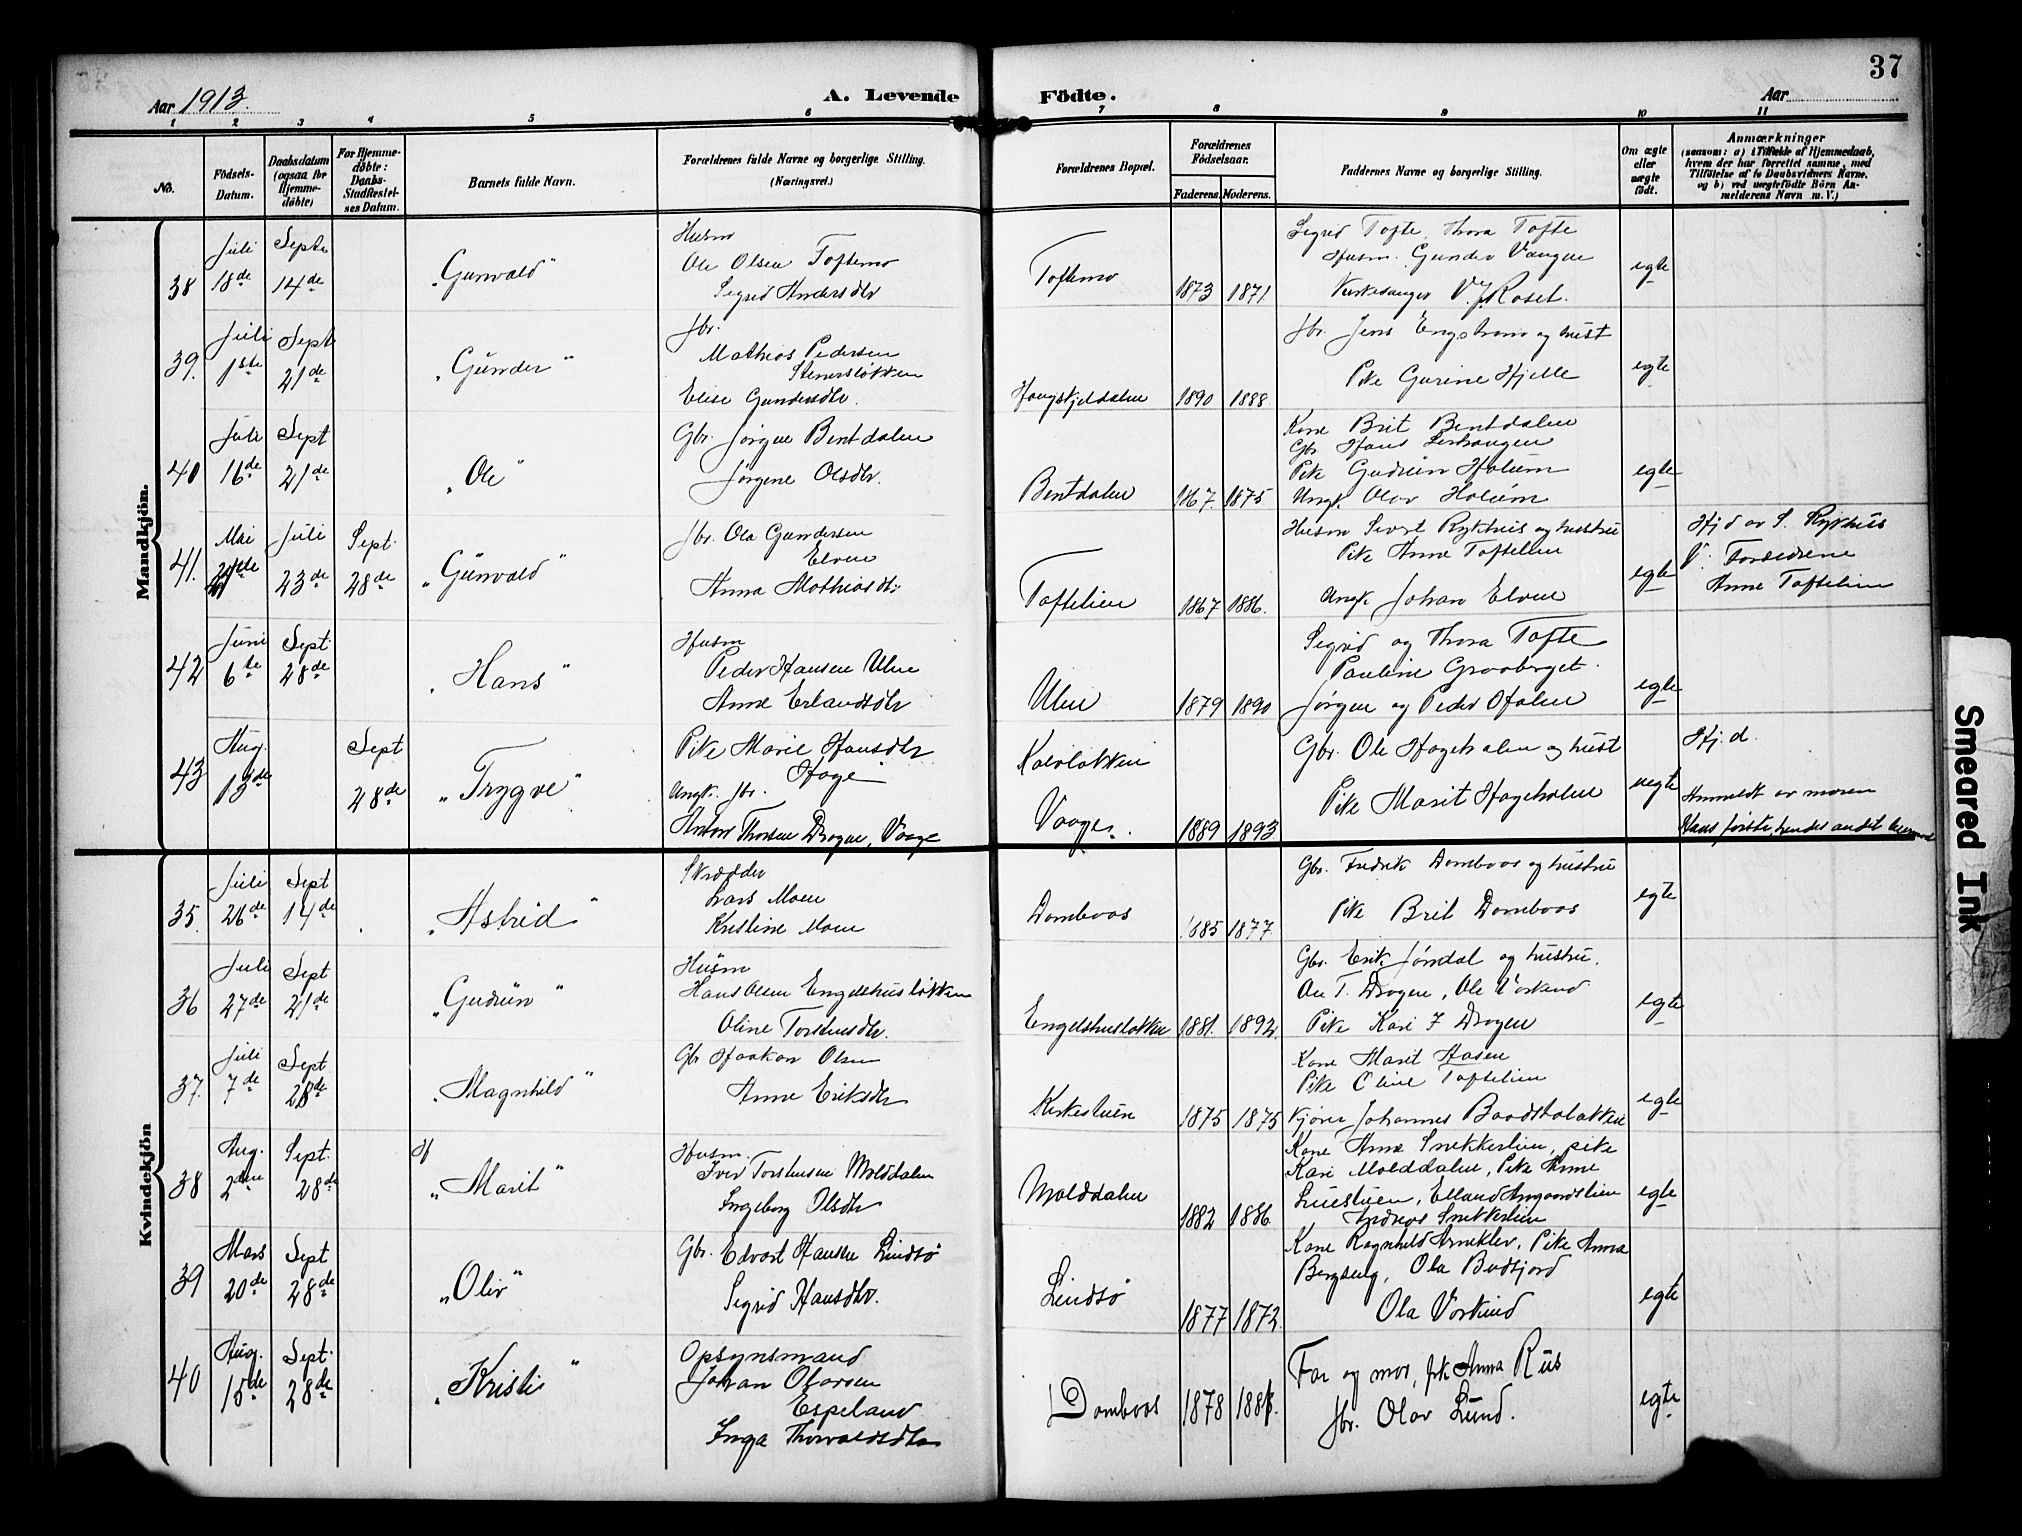 37
Aar 1913.
A. Levende Födte.
Aar
1 2 3 4 5 6 7 8 9 10 11
No.
Födsels-Datum.
Daabsdatum (ogsaa for Hjemme-døbte)
For Hjemme-døbte: Daabs-Stadfæstel-ses Datum.
Barnets fulde Navn.
Forældrenes fulde Navne og borgerlige Stilling. (Næringsvei.)
Forældrenes Bopæl.
Forældrenes Fødselsaar.
Faderens. Moderens.
Faddernes Navne og borgerlige Stilling.
Om ægte eller uægte født.
Anmærkninger
(saasom: a) i Tilfælde af Hjemmedaab,
hvem der har forrettet samme, med
Tilføielse af to Daabsvidners Navne.
og b) ved uægtefødte Börn An-
melderens Navn m. V.)
Mandkjön.
38 Juli 18de Septr 14de
"Gunvald"
Husm
Ole Olsen Toftemo
Sigrid Andersdtr
Toftemo 1873 1871
Sigrid Tofte, Thora Tofte
Husm. Gunder Vangen
Kirkesanger V. J. Roset.
egte
39. Juli 1ste Sept 21de
"Gunder"
fbr.
Mathias Pedersen
Stenersløkken
Elise Gundersdtr.
Haugskjeldalen 1890 1888
fbr. Jens Engstrøm og hust
Pike Gurine Hjelle
egte
40 Juli 16de Sept 21de
"Ole"
Gbr. Jørgen Bentdalen
Jørgene Olsdtr.
Bentdalen 1867. 1875.
Kone Brit Bentdalen
Gbr Hans
Pike Gudrun Holum
Ungk. Olav Holum
egte
41. Mai Juli 23de Sept. 28de
"Gunvald"
fbr. Ola Gundersen
Elven
Anna Mathiasdtr
Toftelien 1867 1886.
Husm Sivert Rykhus og hustru
Pike Anne Toftelien
Ungk Johan Elven
egte
Hj.d av S. Rykhus
V. Forældrene
Anne Toftelien
42 Juni 6te Sept. 28de
"Hans"
Husm
Peder Hansen Ulen
Anne Erlandsdtr
Ulen 1879 1890
Sigrid og Thora Tofte
Pauline Graaberget.
Jørgen og Peder Ofalen
egte
43 Aug. 13de Sept 28de
"Trygve"
Pike Marie Hansdtr
Hage
Ungk. fbr.
Anton Thorsen Drogen, Vaage
Vaage. 1889 1893
Gbr. Ole Hageholen og hust
Pike Marit Hageholen
uegte
Hj.d.
Anmeldt av moren
Hans første, hendes andet
Kvindekjön
35. Juli 26de Sept 14de
"Astrid"
Skrædder
Lars Moen
Kristine Moen
Dombaas 1885 1877
Gbr. Fredrik Dombaas og hustru
Pike Brit Dombaas
egte
36 Juli 27de Sept 21de
"Gudrun"
Husm
Hans Olsen Engelshusløkken
Oline Torstensdtr.
Engelshusløkken 1881. 1892.
Gbr. Erik Jøndal og hustru.
An T. Drogen, Ole Vorkind
Pike Kari T Drogen
egte
37. Juli 7de Sept 28de
"Magnhild"
Gbr Haakon Olsen
Anne Eriksdtr
Kirkestuen 1875 1875
Kone Marit Aasen
Pike Oline Toftelien
Kjører Johannes Baadstoløkken
egte
38 Aug. 2den Sept. 28de
H
"Marit"
Husm.
Iver Torstensen Molddalen
Ingeborg Olsdtr
Molddalen 1882 1886
Kone Anne Snekkerlien, pike
Kari Molddalen, Pike Anne
Luestuen, Elland Amgaardslien
Andreas Snekkerlien
egte
39 Mars 20de Sept 28de
"Oliv"
Gbr. Edvart Hansen Lindsø
Sigrid Hansdtr.
Lindsø 1877 1872.
Kone Ragnhild Arneklev, Pike Anna
Bergseng, Ola Budfjord
Ola Vorkind
egte
40 Aug. 15de Sept. 28de
"Kristi"
Opsynsmand
Johan Olavsen
Espeland
Inga Thorvaldsdtr
Dombaas 1878
Far og mor, pk Anna Rus
fbr. Olav Lund.
egte
Smeared Ink